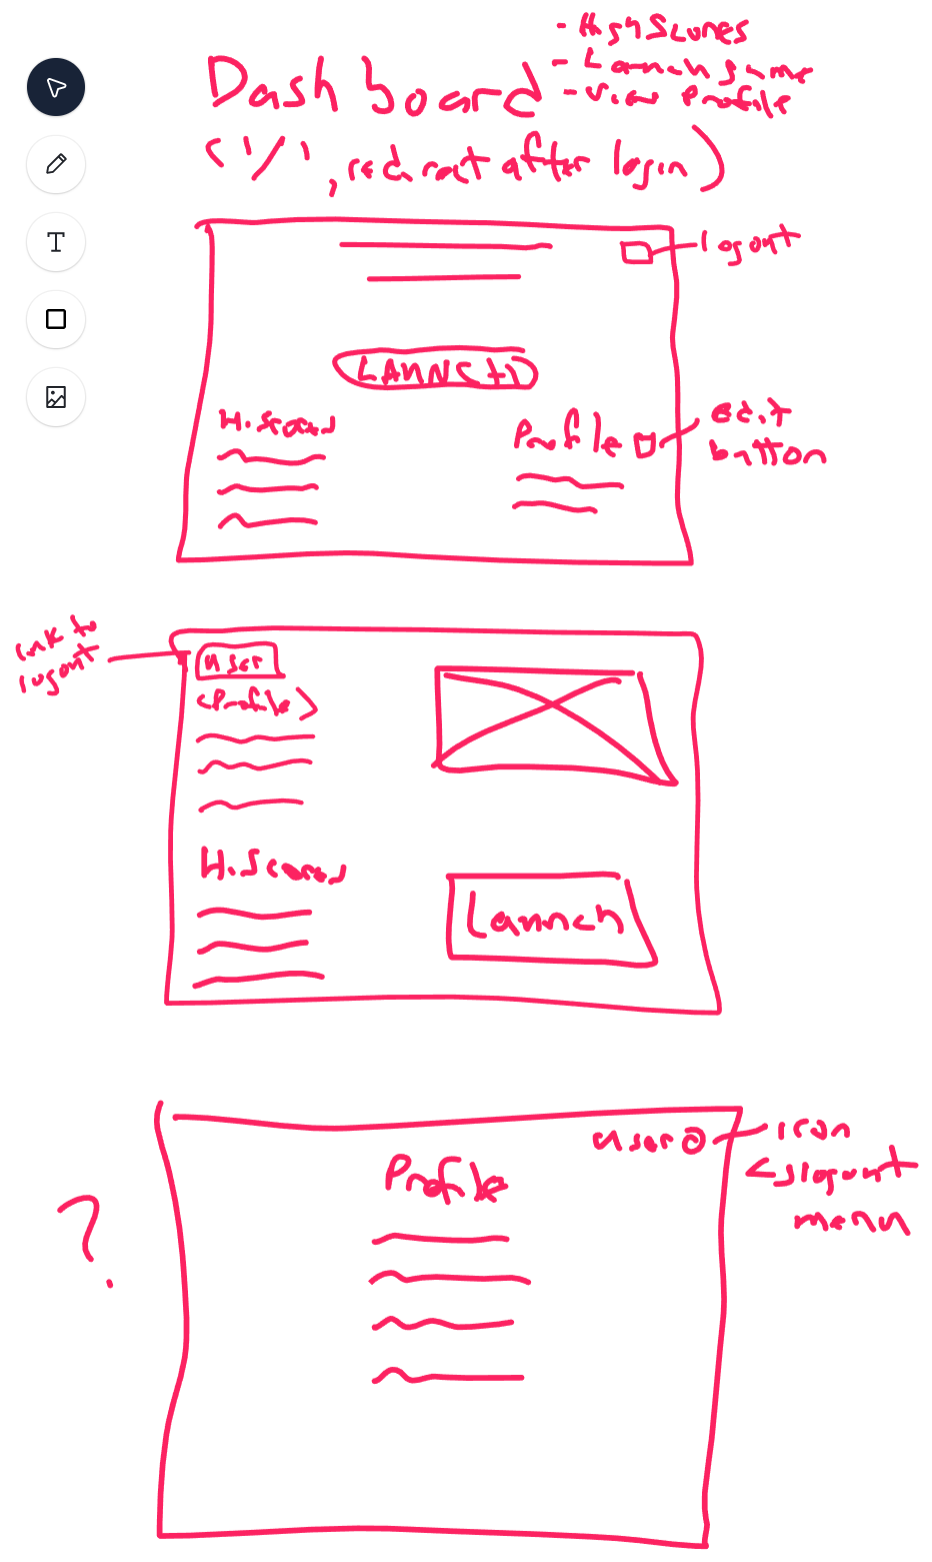 - HighScores
- Launch game
- View Profile
Dashboard
('/', redirect after login)
logout
LAUNCH
H.scores
Profile
edit
button
link to
logout
user
<Profile>
H.Scores
Launch
user
icon
<
logout
menu
Profile
?
T